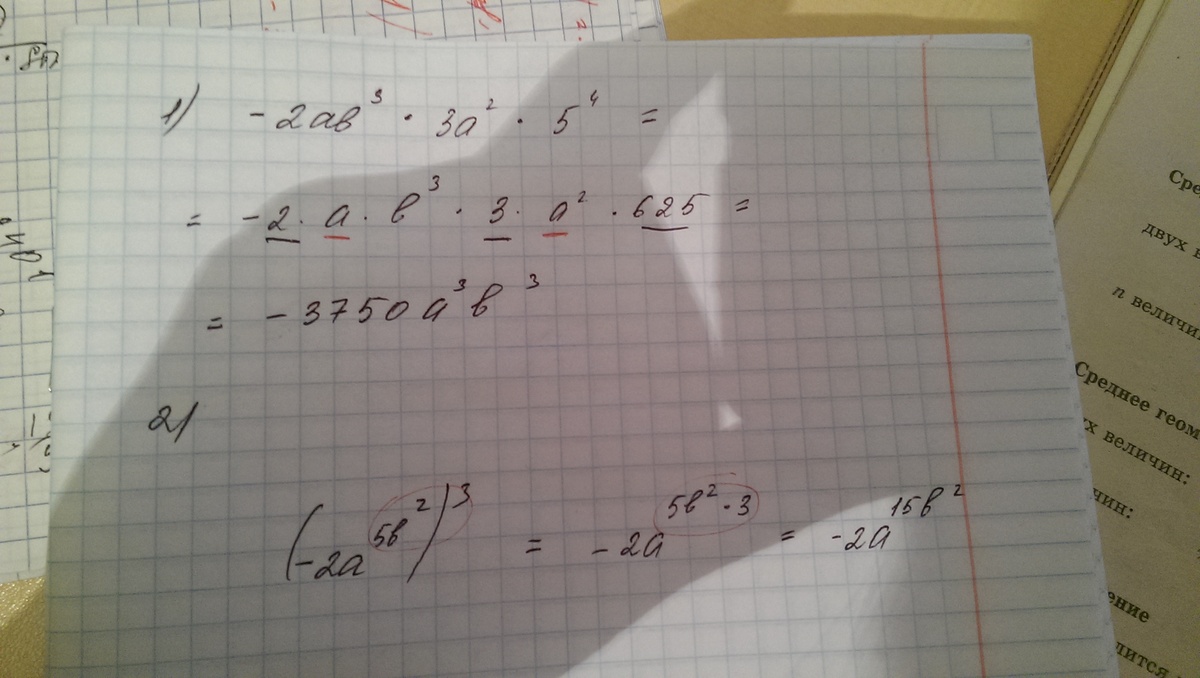 1) -2ab³ · 3a² · 5⁴ =
= -2 · a · b³ · 3 · a² · 625 =
= -3750a³b³
2)
(-2a^(5b²))³ = -2a^(5b²·3) = -2a^(15b²)
Сре
двух в
n величин
Среднее геом
ух величин:
чин:
ение
лится